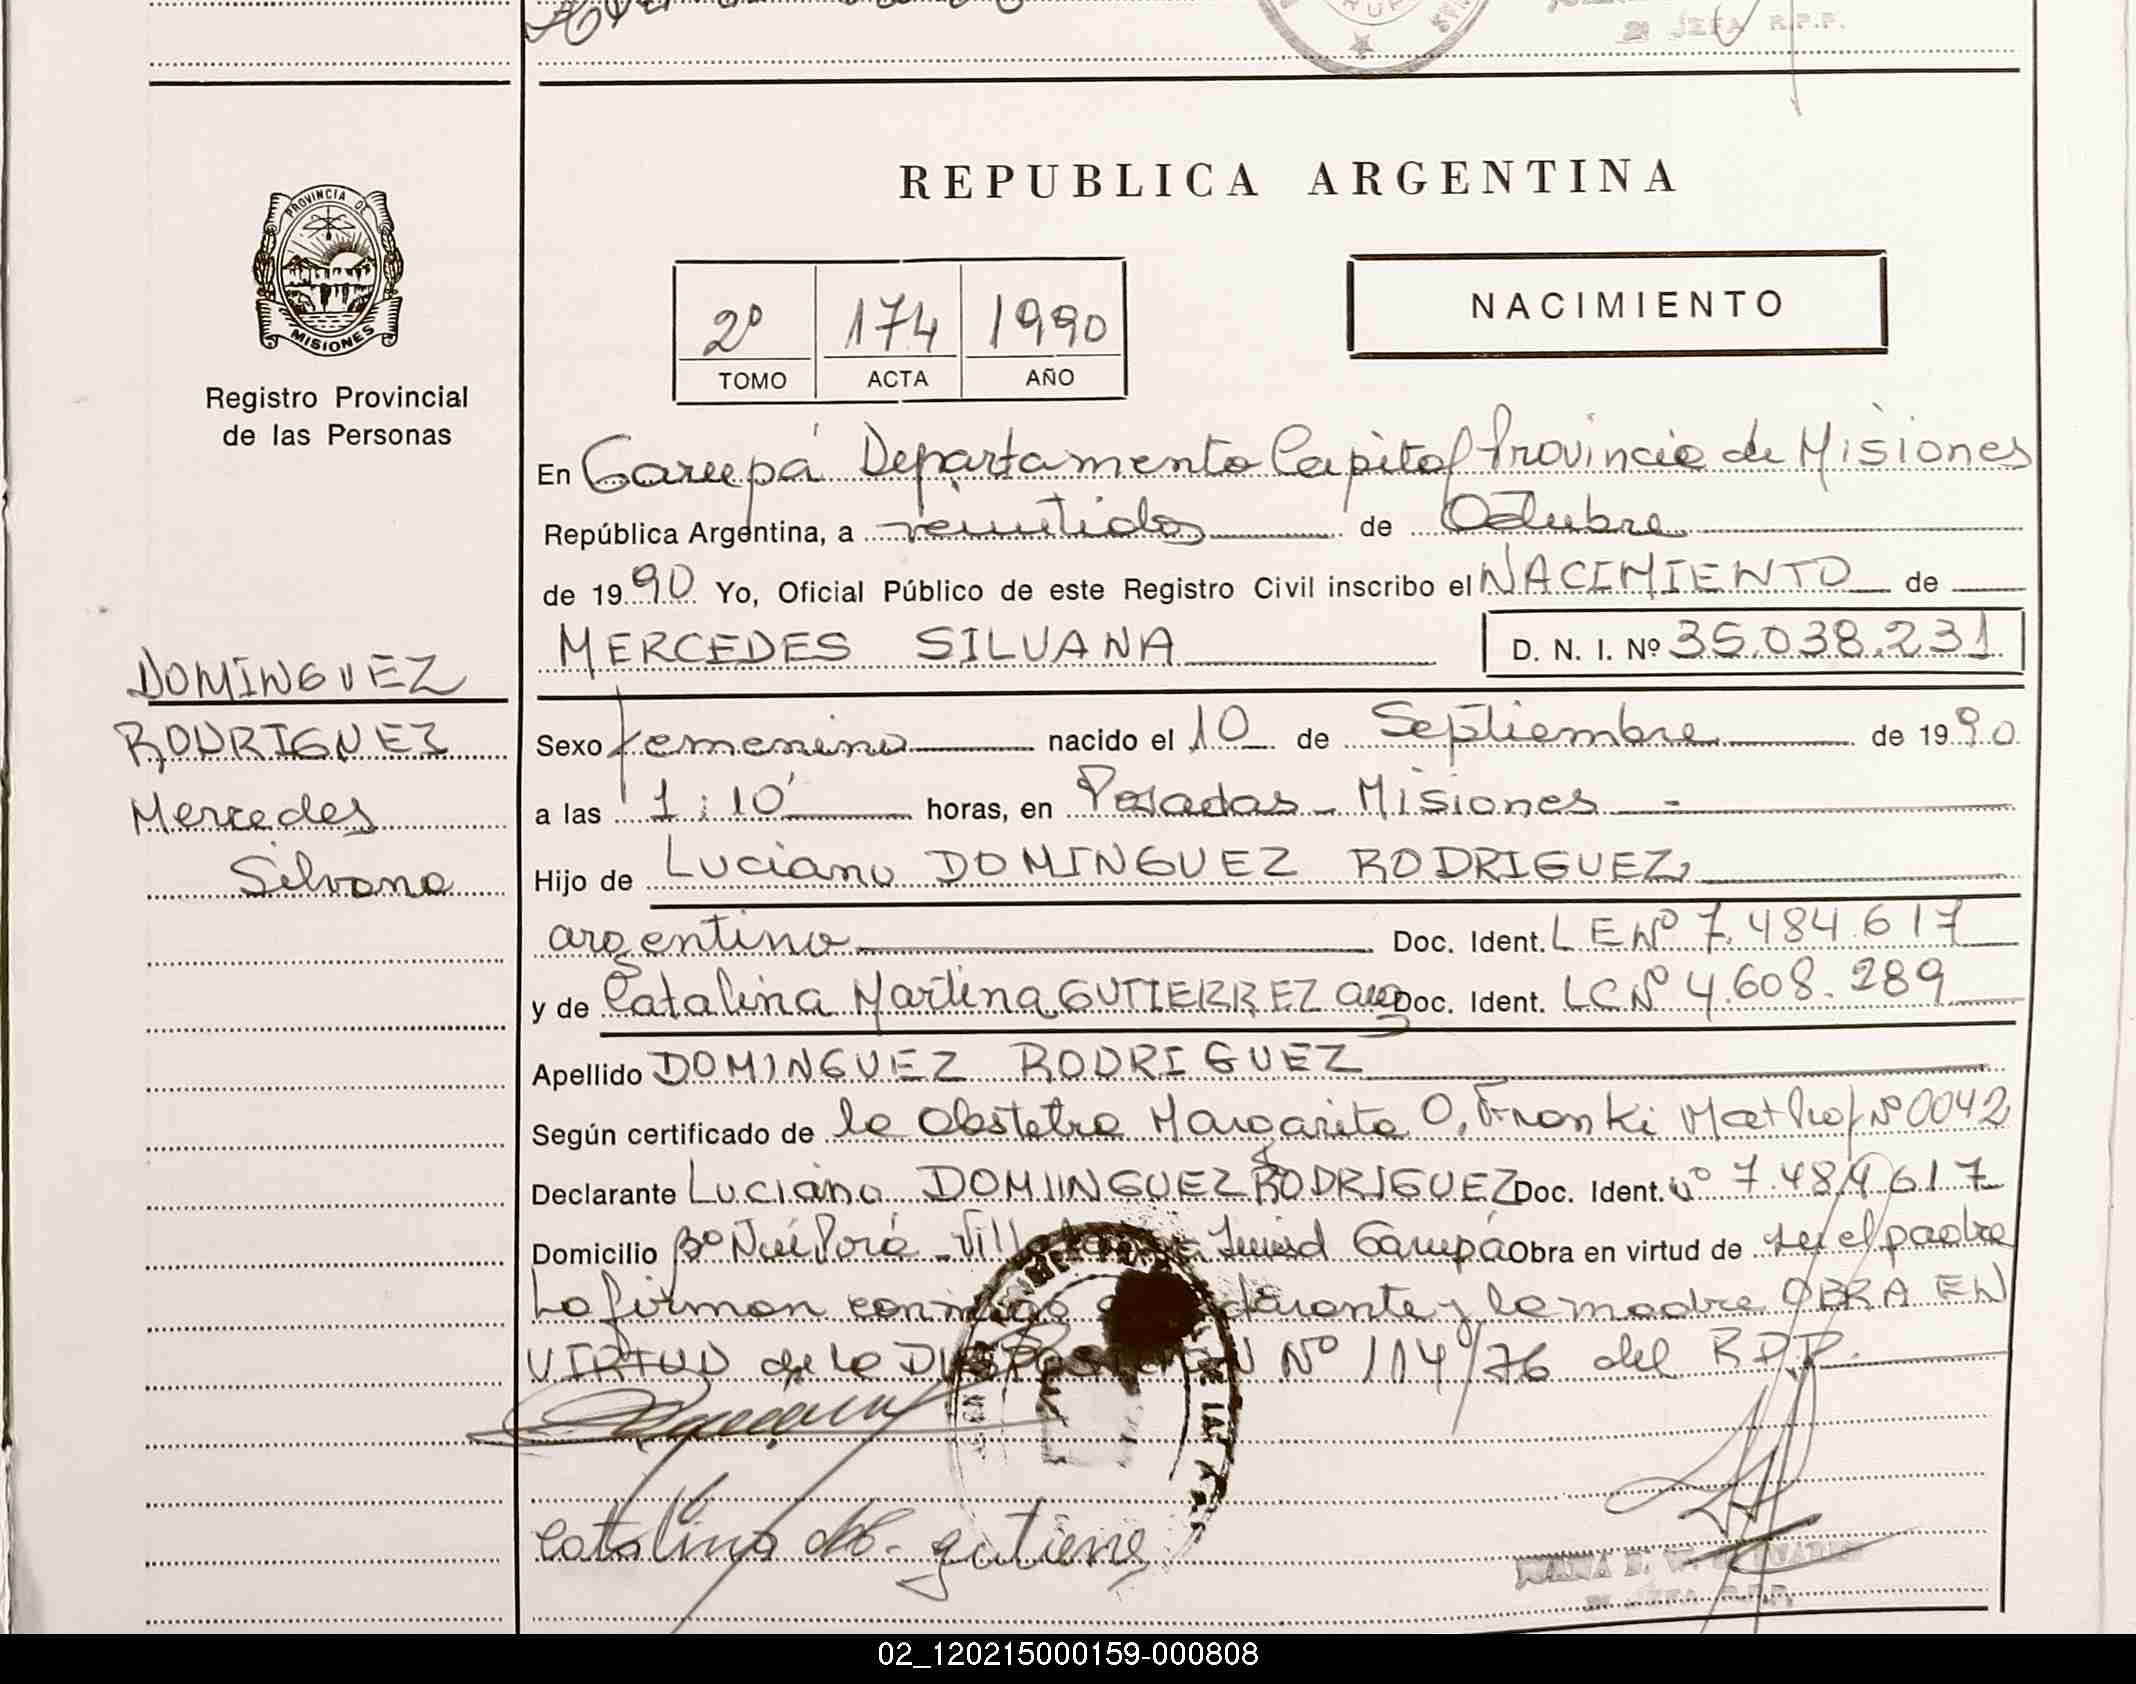 REPUBLICA ARGENTINA
PROVINCIA DE
MISIONES
Registro Provincial
de las Personas
2º 174 1990
TOMO ACTA AÑO
NACIMIENTO
En Garupá Departamento Capital Provincia de Misiones
República Argentina, a veintidos de Octubre
de 1990 Yo, Oficial Público de este Registro Civil inscribo el NACIMIENTO de
MERCEDES SILVANA D. N. I. Nº 35.038.231
DOMINGUEZ
RODRIGUEZ
Mercedes
Silvana
Sexo femenino nacido el 10 de Septiembre de 1990
a las 1:10' horas, en Posadas - Misiones -
Hijo de Luciano DOMINGUEZ RODRIGUEZ,
argentino Doc. Ident. LE Nº 7.484.617
y de Catalina Martina GUTIERREZ arg Doc. Ident. LC Nº 4.608.289
Apellido DOMINGUEZ RODRIGUEZ
Según certificado de la Obstetra Margarita O. Fronki Mat Prof Nº 0042
Declarante Luciano DOMINGUEZ RODRIGUEZ Doc. Ident. Nº 7.484.617
Domicilio Bº Ñu Porá - Garupá Obra en virtud de ser el padre
Lo firman conmigo declarante y la madre OBRA EN
VIRTUD de la DISPOSICION Nº 114/76 del R.P.P.
Catalina de gutierre
JEFA R.P.P.
02_120215000159-000808